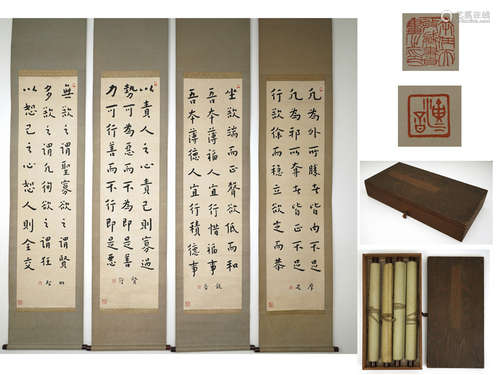 凡為外所勝者皆內不足
凡為邪所奪者皆正不足
行欲徐而穩立欲定而恭
坐欲端而正聲欲低而和
吾本薄福人宜行惜福事
吾本薄德人宜行積德事
以責人之心責己則寡過
勢可為惡而不為即是善
力可行善而不行即是惡
無欲之謂聖寡欲之謂賢
多欲之謂凡徇欲之謂狂
以恕己之心恕人則全交
演音